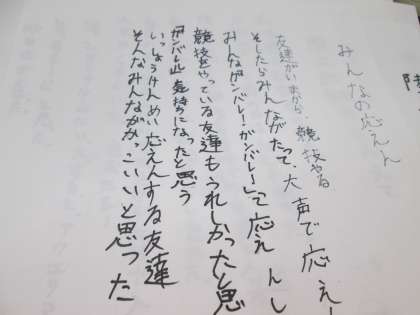 みんなの応えん
友達がいまから、競技やる
そしたらみんながたって、大声で応え
みんなガンバレー!ガンバレー!」て応えんし
競技をやっている友達もうれしかったと思
「ガンバレ!!」気持ちになったと思う
いっしょうけんめい応えんする友達
そんなみんながかっこいいと思った